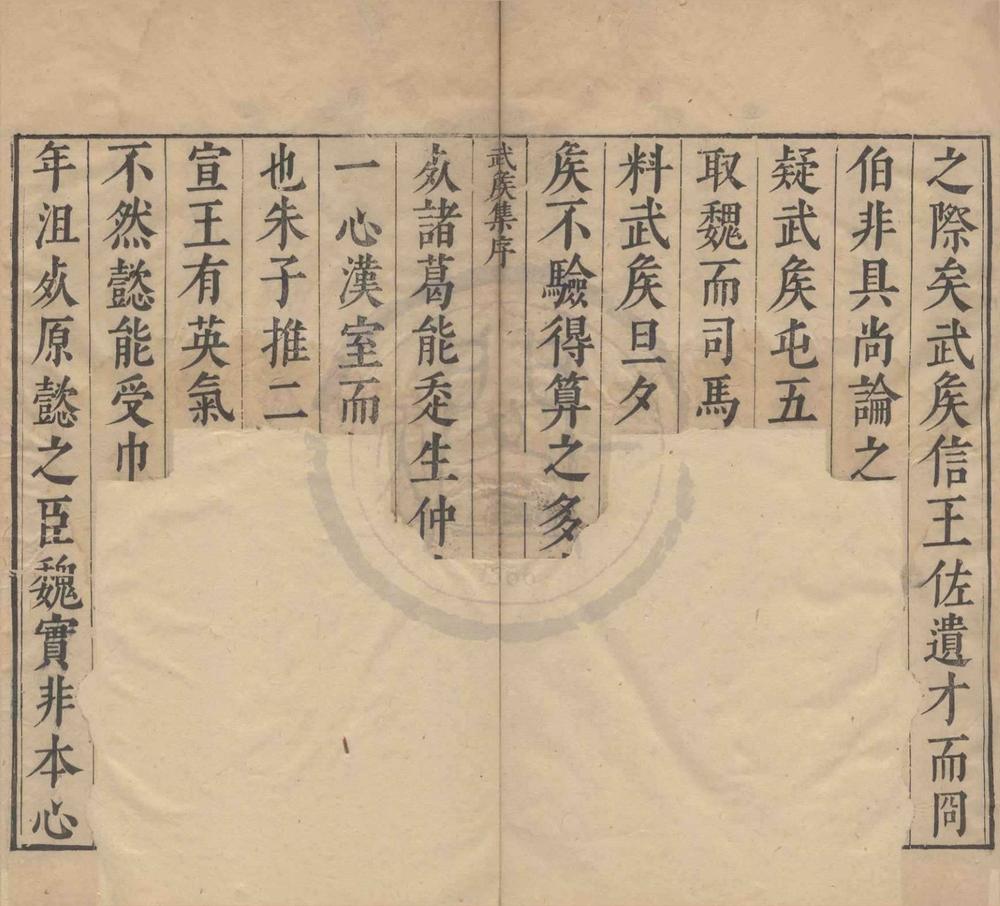 之際矣武矦信王佐遺才而冏
伯非具尚論之
疑武矦屯五
取魏而司馬
料武矦旦夕
矦不驗得算之多
武矦集序
諸葛能走生仲
一心漢室而
也朱子推二
宣王有英氣
不然懿能受巾
年沮原懿之臣魏實非本心